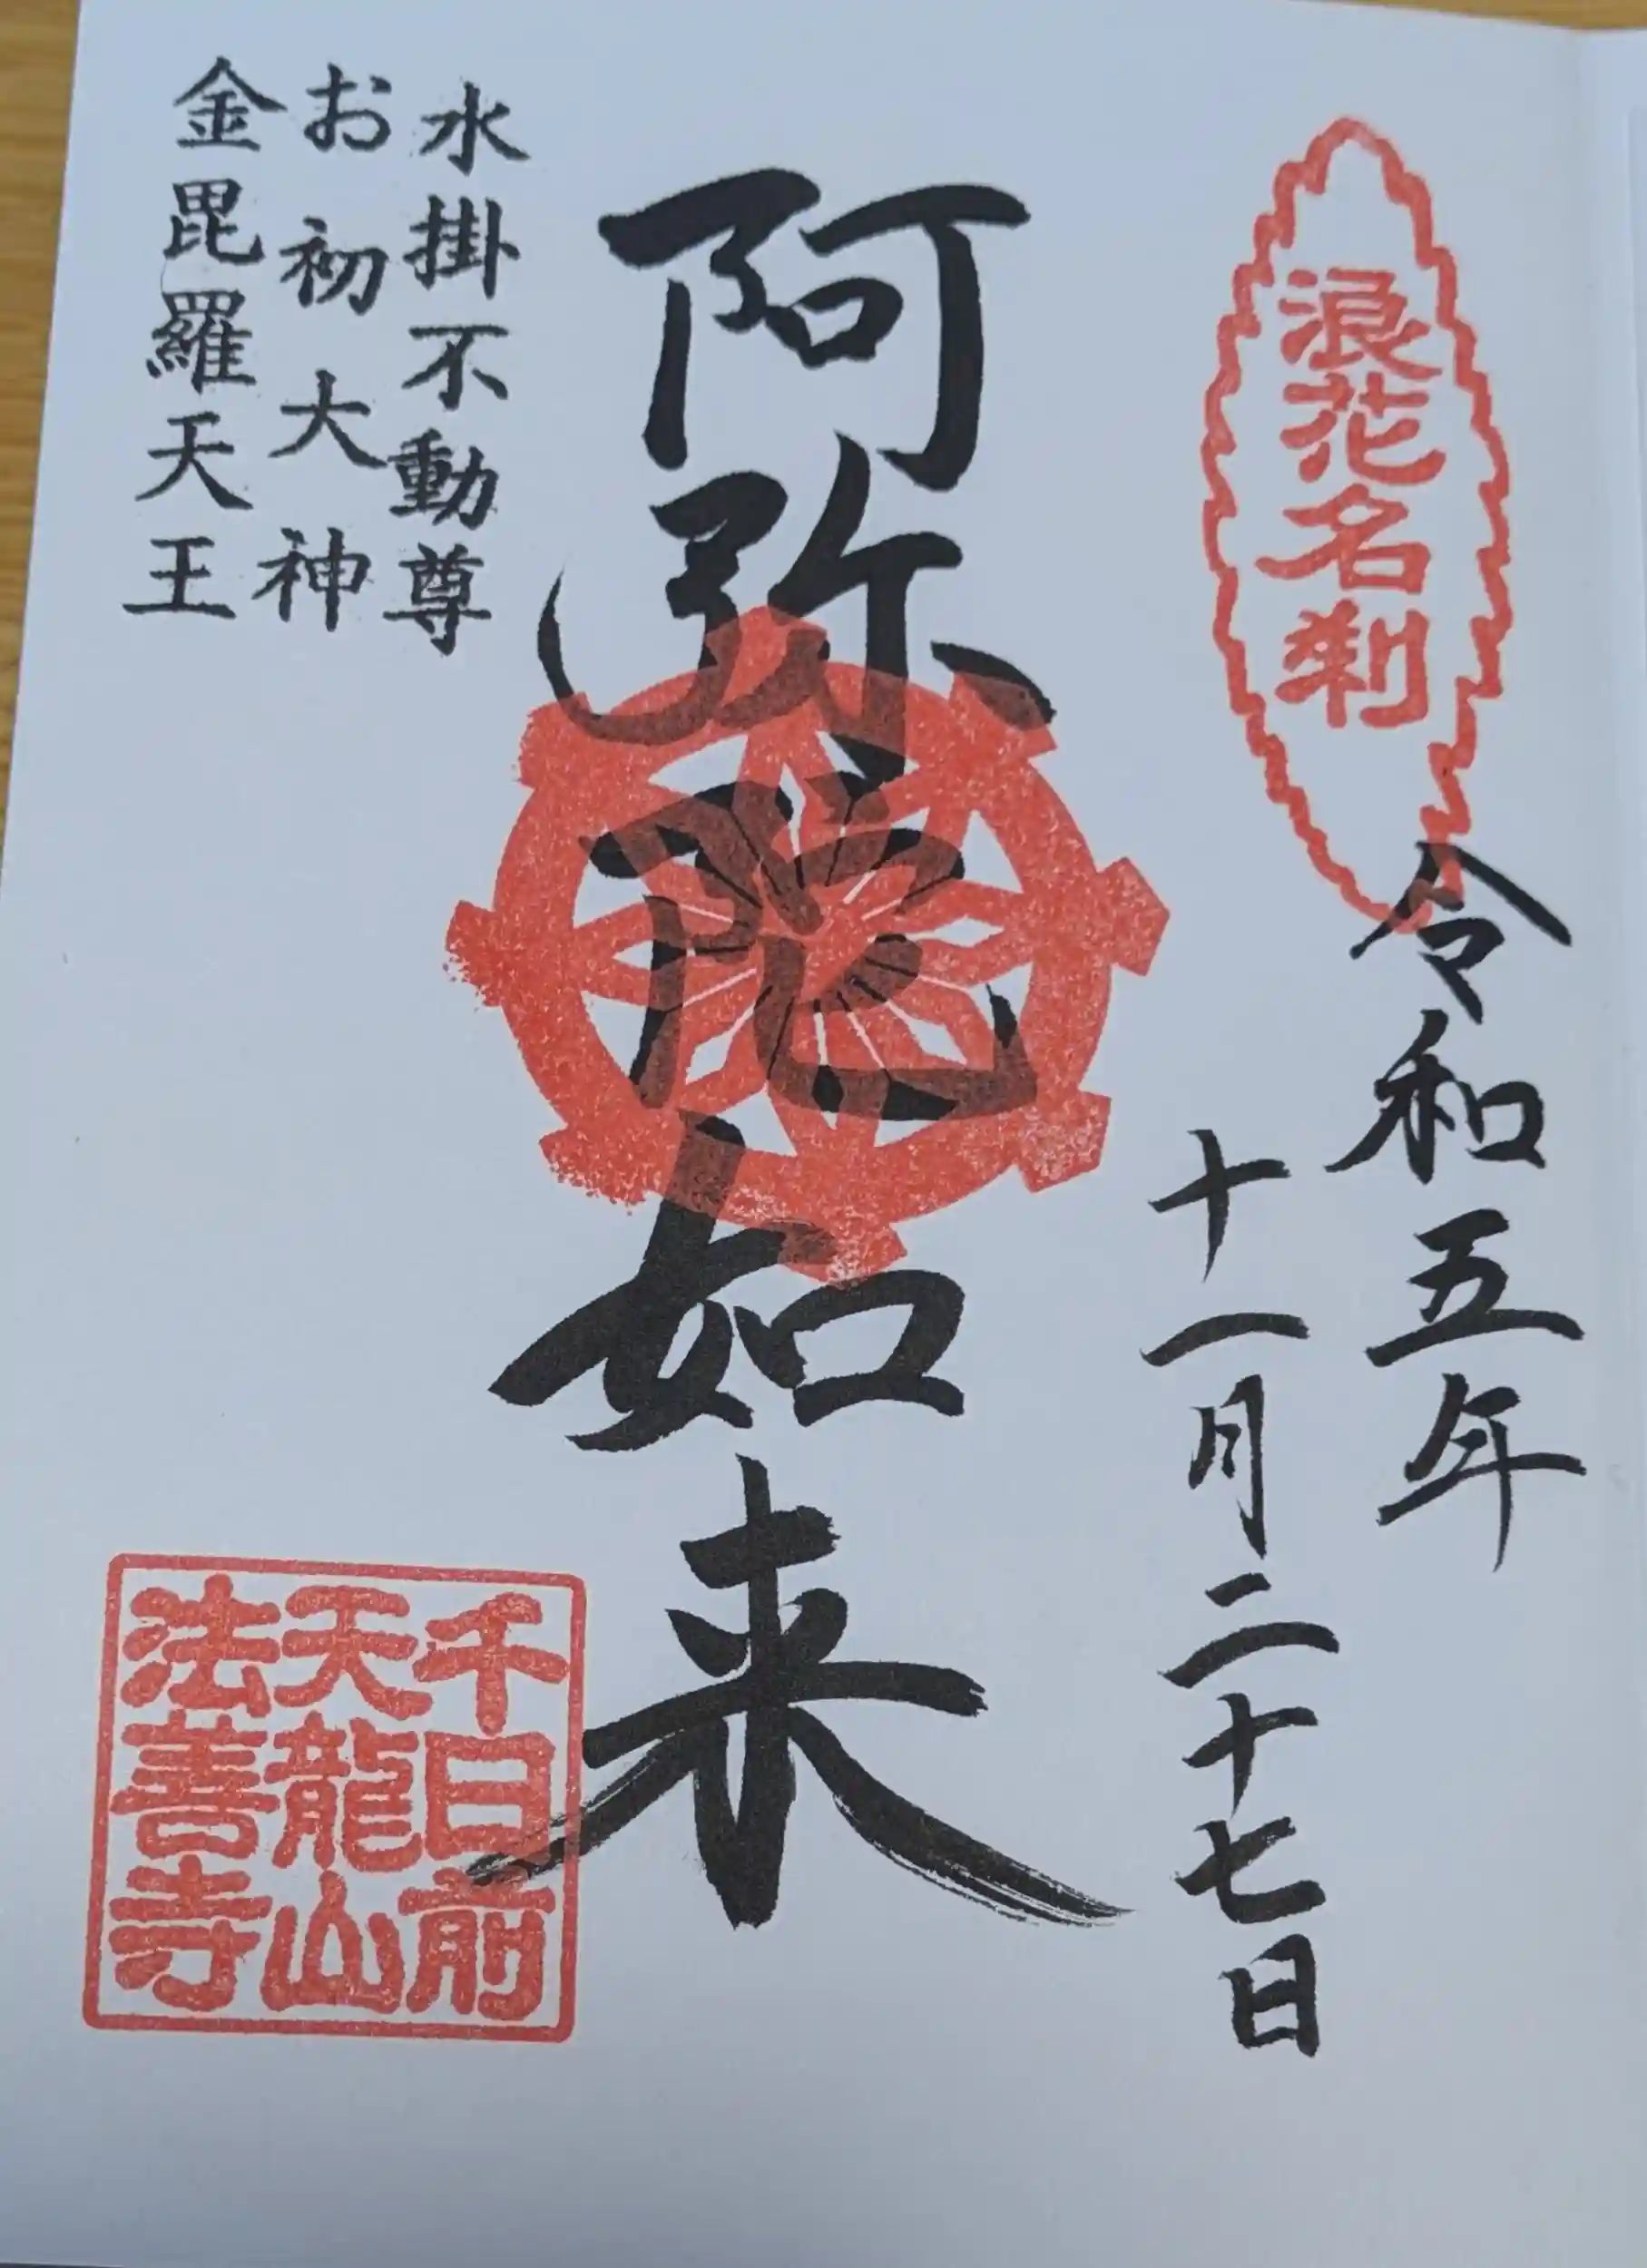 浪花名刹
令和五年
十一月二十七日
阿弥陀如来
水掛不動尊
お初大神
金毘羅天王
千日前
天龍山
法善寺